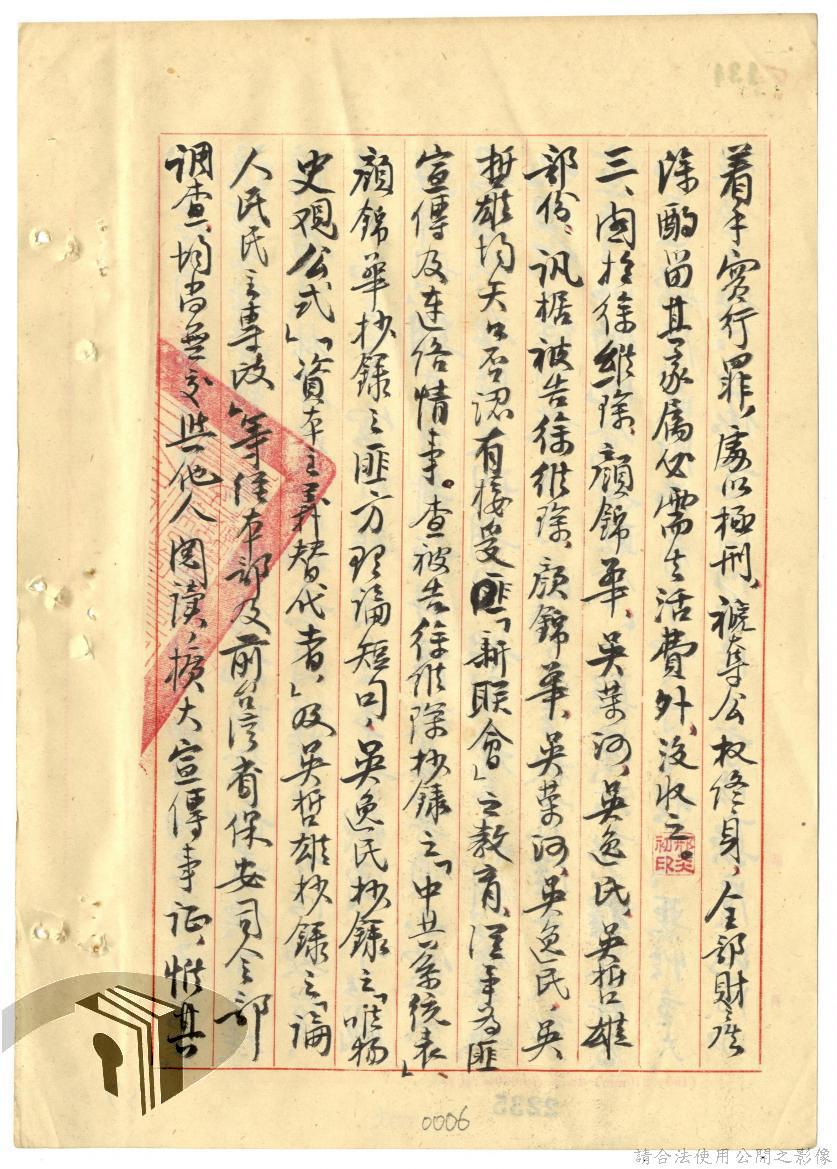 着手實行罪，處以極刑，褫奪公权終身，全部財產
除酌留其家屬必需生活費外，沒收之。
三、關於徐維琛、顏錦華、吳崇河、吳逸民、吳哲雄
部份，訊据被告徐維琛、顏錦華、吳崇河、吳逸民、吳
哲雄均矢口否認有接受匪「新联會」之教育，從事為匪
宣傳及連络情事。查被告徐維琛抄錄之「中共系統表」、
顏錦華抄錄之匪方理論短句，吳逸民抄錄之「唯物
史观公式」「資本主義替代者」及吳哲雄抄錄之「論
人民民主專政」等經本部及前台湾省保安司令部
調查，均尚無交與他人閱讀，擴大宣傳事証，惟其
0006
請合法使用公開之影像